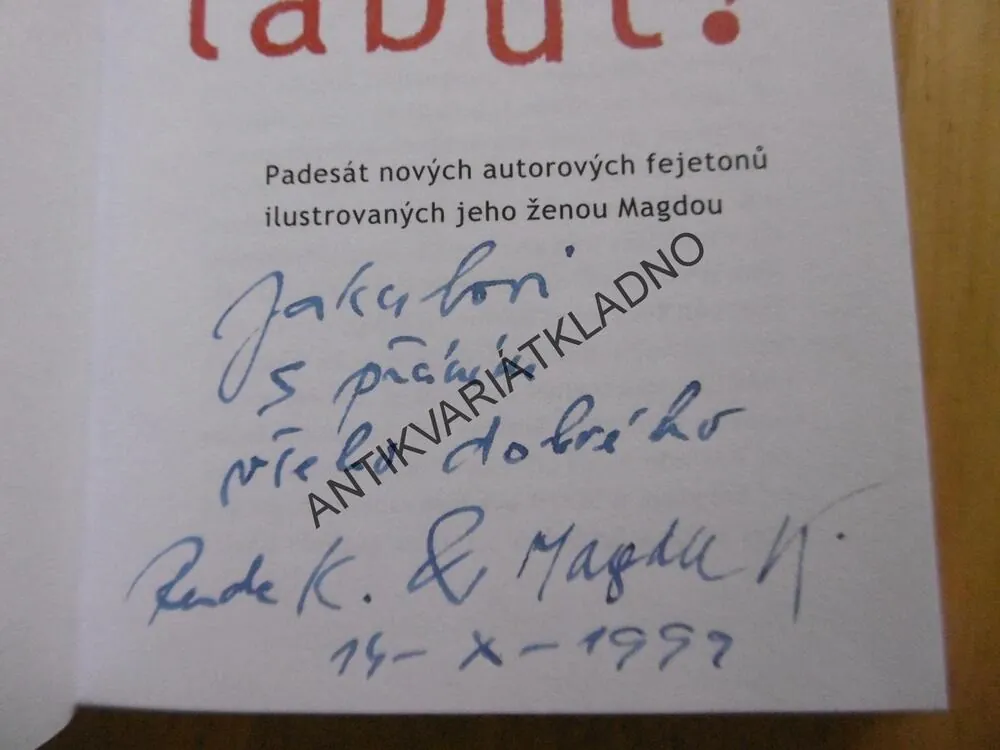 labuť?
Padesát nových autorových fejetonů
ilustrovaných jeho ženou Magdou
Jakubovi
s přáním
všeho dobrého
K. & Magda K.
14-X-1999
ANTIKVARIÁTKLADNO